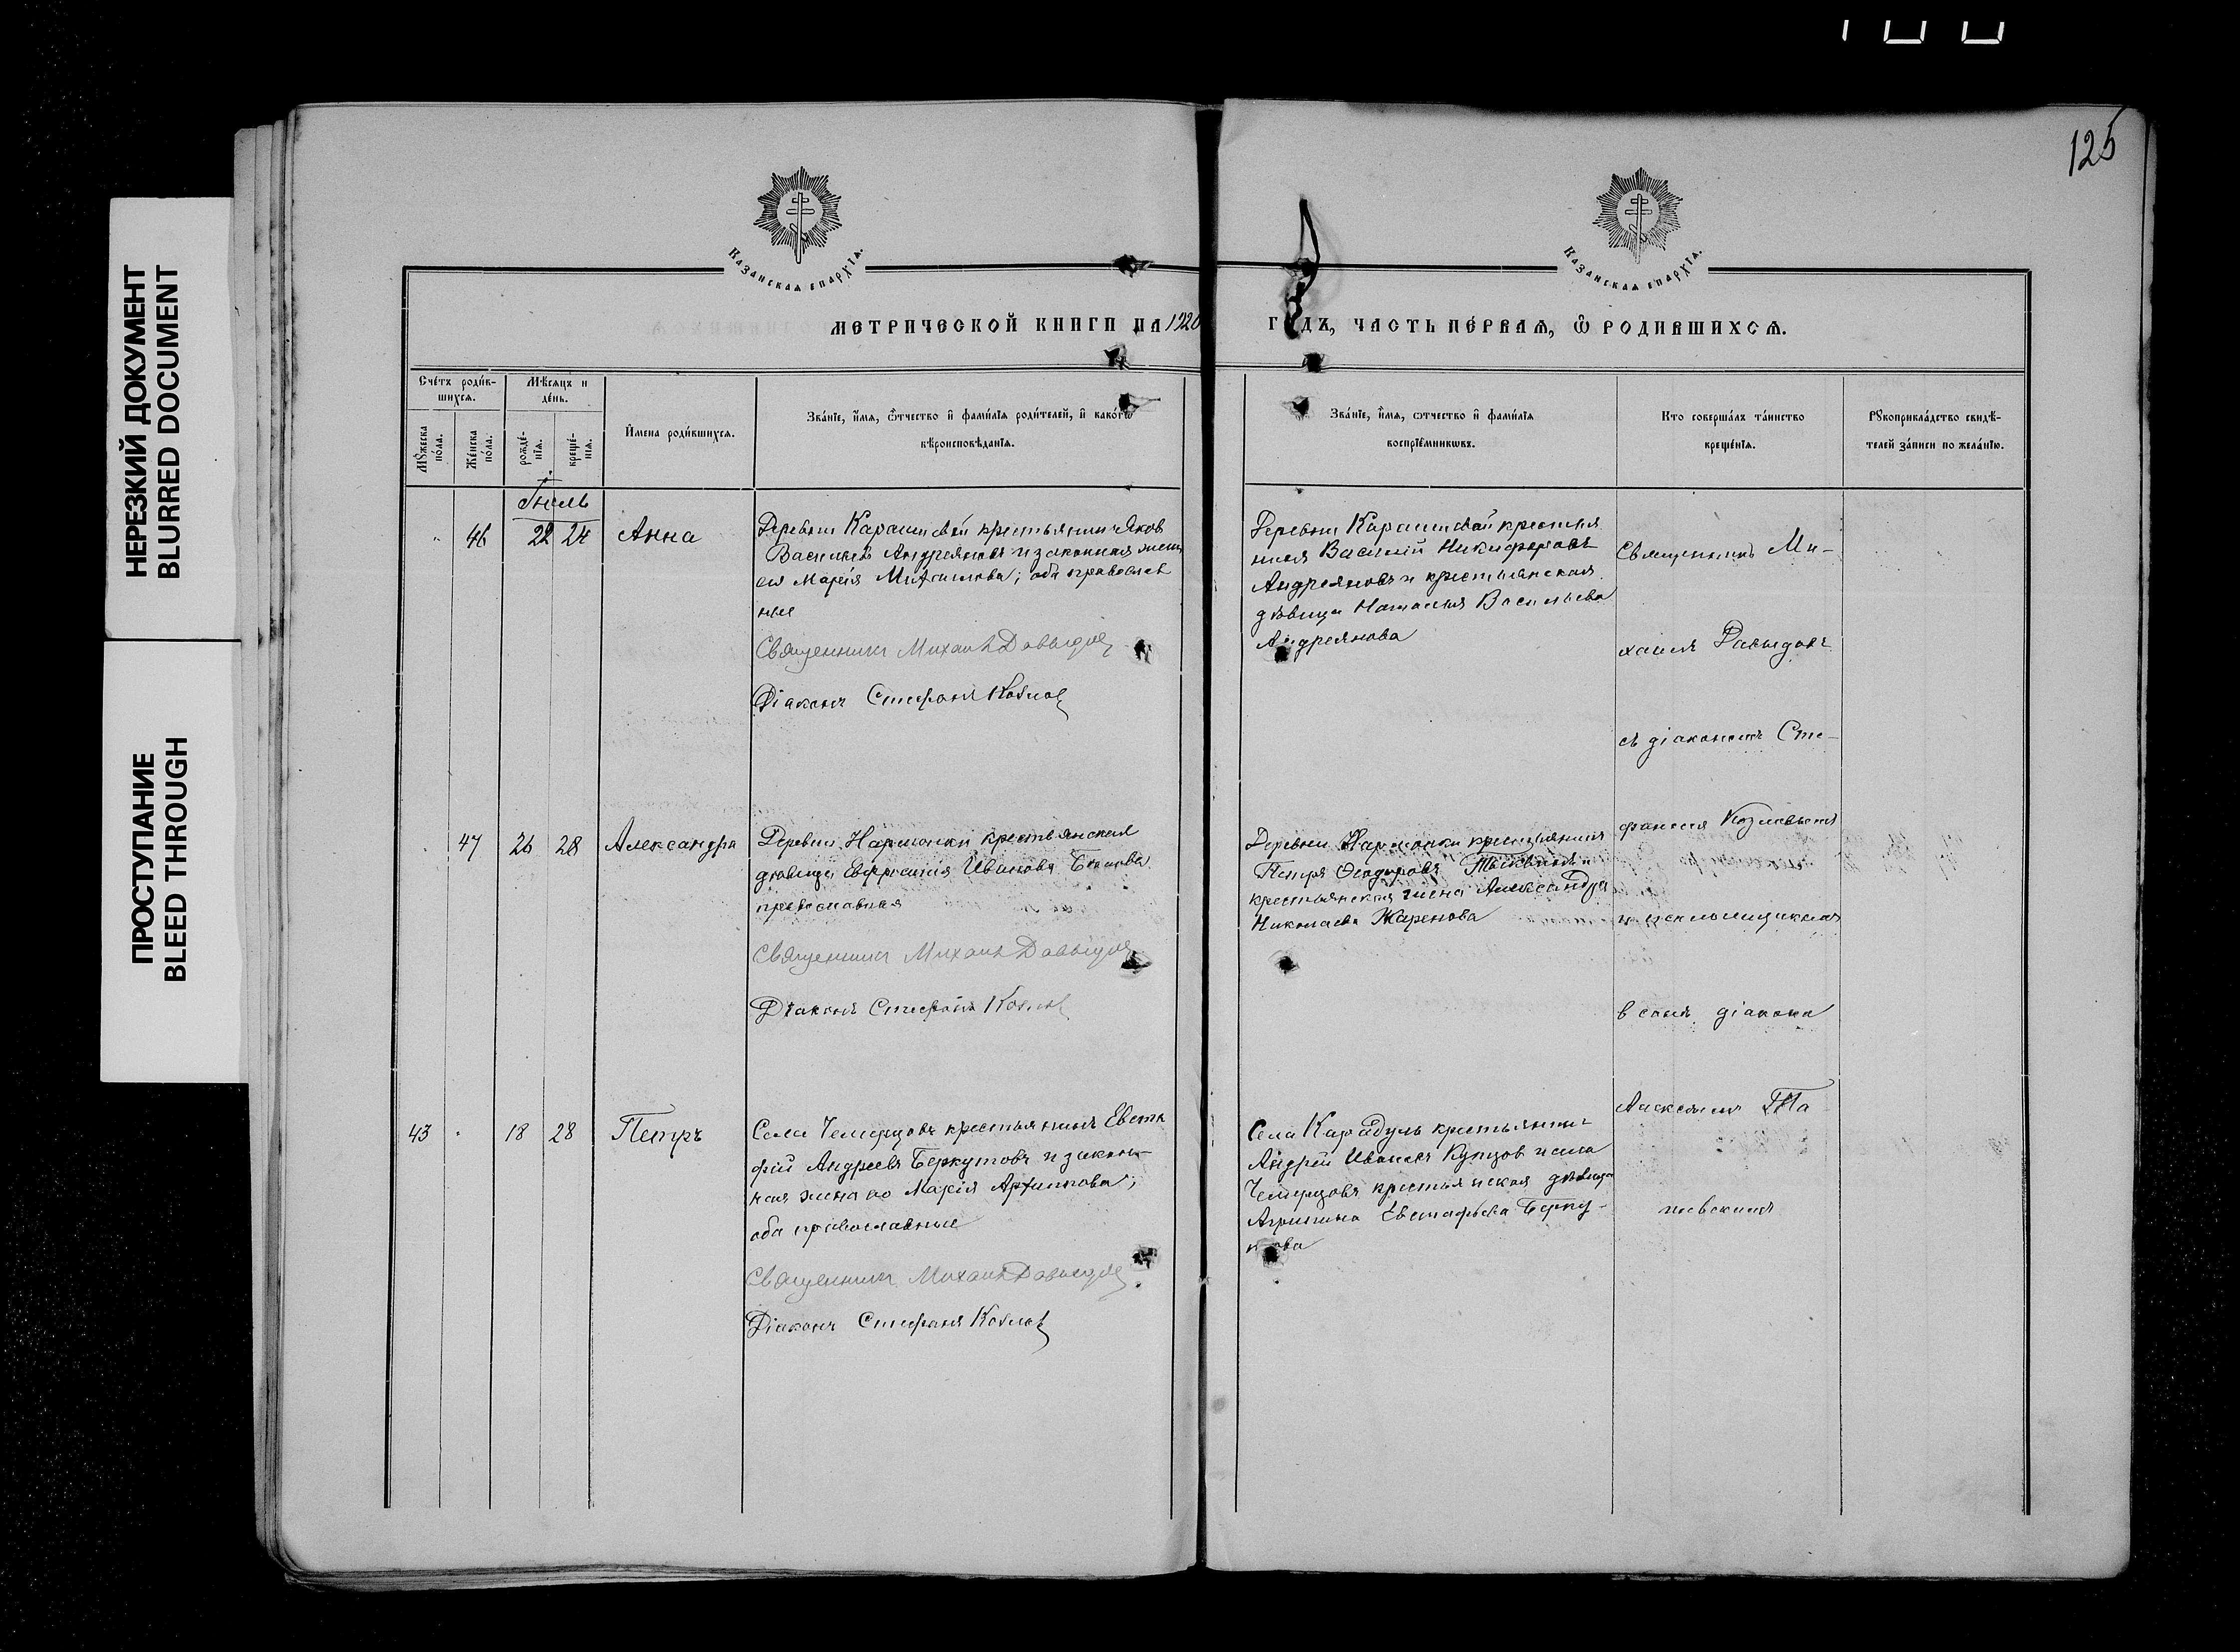 НЕРЕЗКИЙ ДОКУМЕНТ
BLURRED DOCUMENT
ПРОСТУПАНИЕ
BLEED THROUGH
125
КАЗАНСКАѦ ЕПАРХЇѦ.
КАЗАНСКАѦ ЕПАРХЇѦ.
МЕТРИЧЕСКОЙ КНИГИ НА 1920
ГОДЪ, ЧАСТЬ ПЕ́РВАѦ, Ѿ РОДИВШИХСѦ.
Сче́тъ роди́в-
шихсѧ.
Мѣ́сѧцъ и
де́нь.
Мꙋ́жеска
по́ла.
Же́нска
по́ла.
рожде́-
нїѧ.
креще́-
нїѧ.
И҆мена роди́вшихсѧ.
Зва́нїе, и҆́мѧ, ѻ҆́тчество и҆ фами́лїѧ роди́телей, и҆ како́гѡ
вѣроисповѣ́данїѧ.
Зва́нїе, и҆́мѧ, ѻ҆́тчество и҆ фами́лїѧ
воспрїе́мникѡвъ.
Кто соверша́лъ та́инство
креще́нїѧ.
Рꙋкоприкла́дство свидѣ́-
телей за́писи по жела́нїю.
Іюль
46 22 24 Анна
Деревни крестьянинъ Яковъ
Васильевъ Андреяновъ и законная жена
его Марія; оба православ
ные
Священникъ Михаилъ Давыдов
Діаконъ Стефанъ Козлов
Деревни крестья
нинъ Василій Никифоровъ
Андреяновъ и крестьянская
дѣвица Наталія Васильева
Андреянова
Священникъ Ми-
хаилъ Давыдовъ
съ діакономъ Сте-
фаномъ Козловымъ
и псаломщикомъ
в санѣ діакона
Алексѣемъ
47 26 28 Александра
Деревни Нармонки крестьянская
дѣвица Евфросинія Иванова
православная
Священникъ Михаилъ Давыдов
Діаконъ Стефанъ Козлов
Деревни Нармонки крестьянинъ
Петръ Ѳеодоровъ и
крестьянская жена Александра
Николаева Жаренова
43 18 28 Петръ
Села Чемерцовъ крестьянинъ Евста
фій Андреевъ Беркутовъ и закон-
ная жена его Марія;
оба православные
Священникъ Михаилъ Давыдов
Діаконъ Стефанъ Козлов
Села Карадуль крестьянинъ
Андрей Ивановъ Купцов и села
Чемерцовъ крестьянская дѣвица
Агрипина Евстафьева Берку-
това